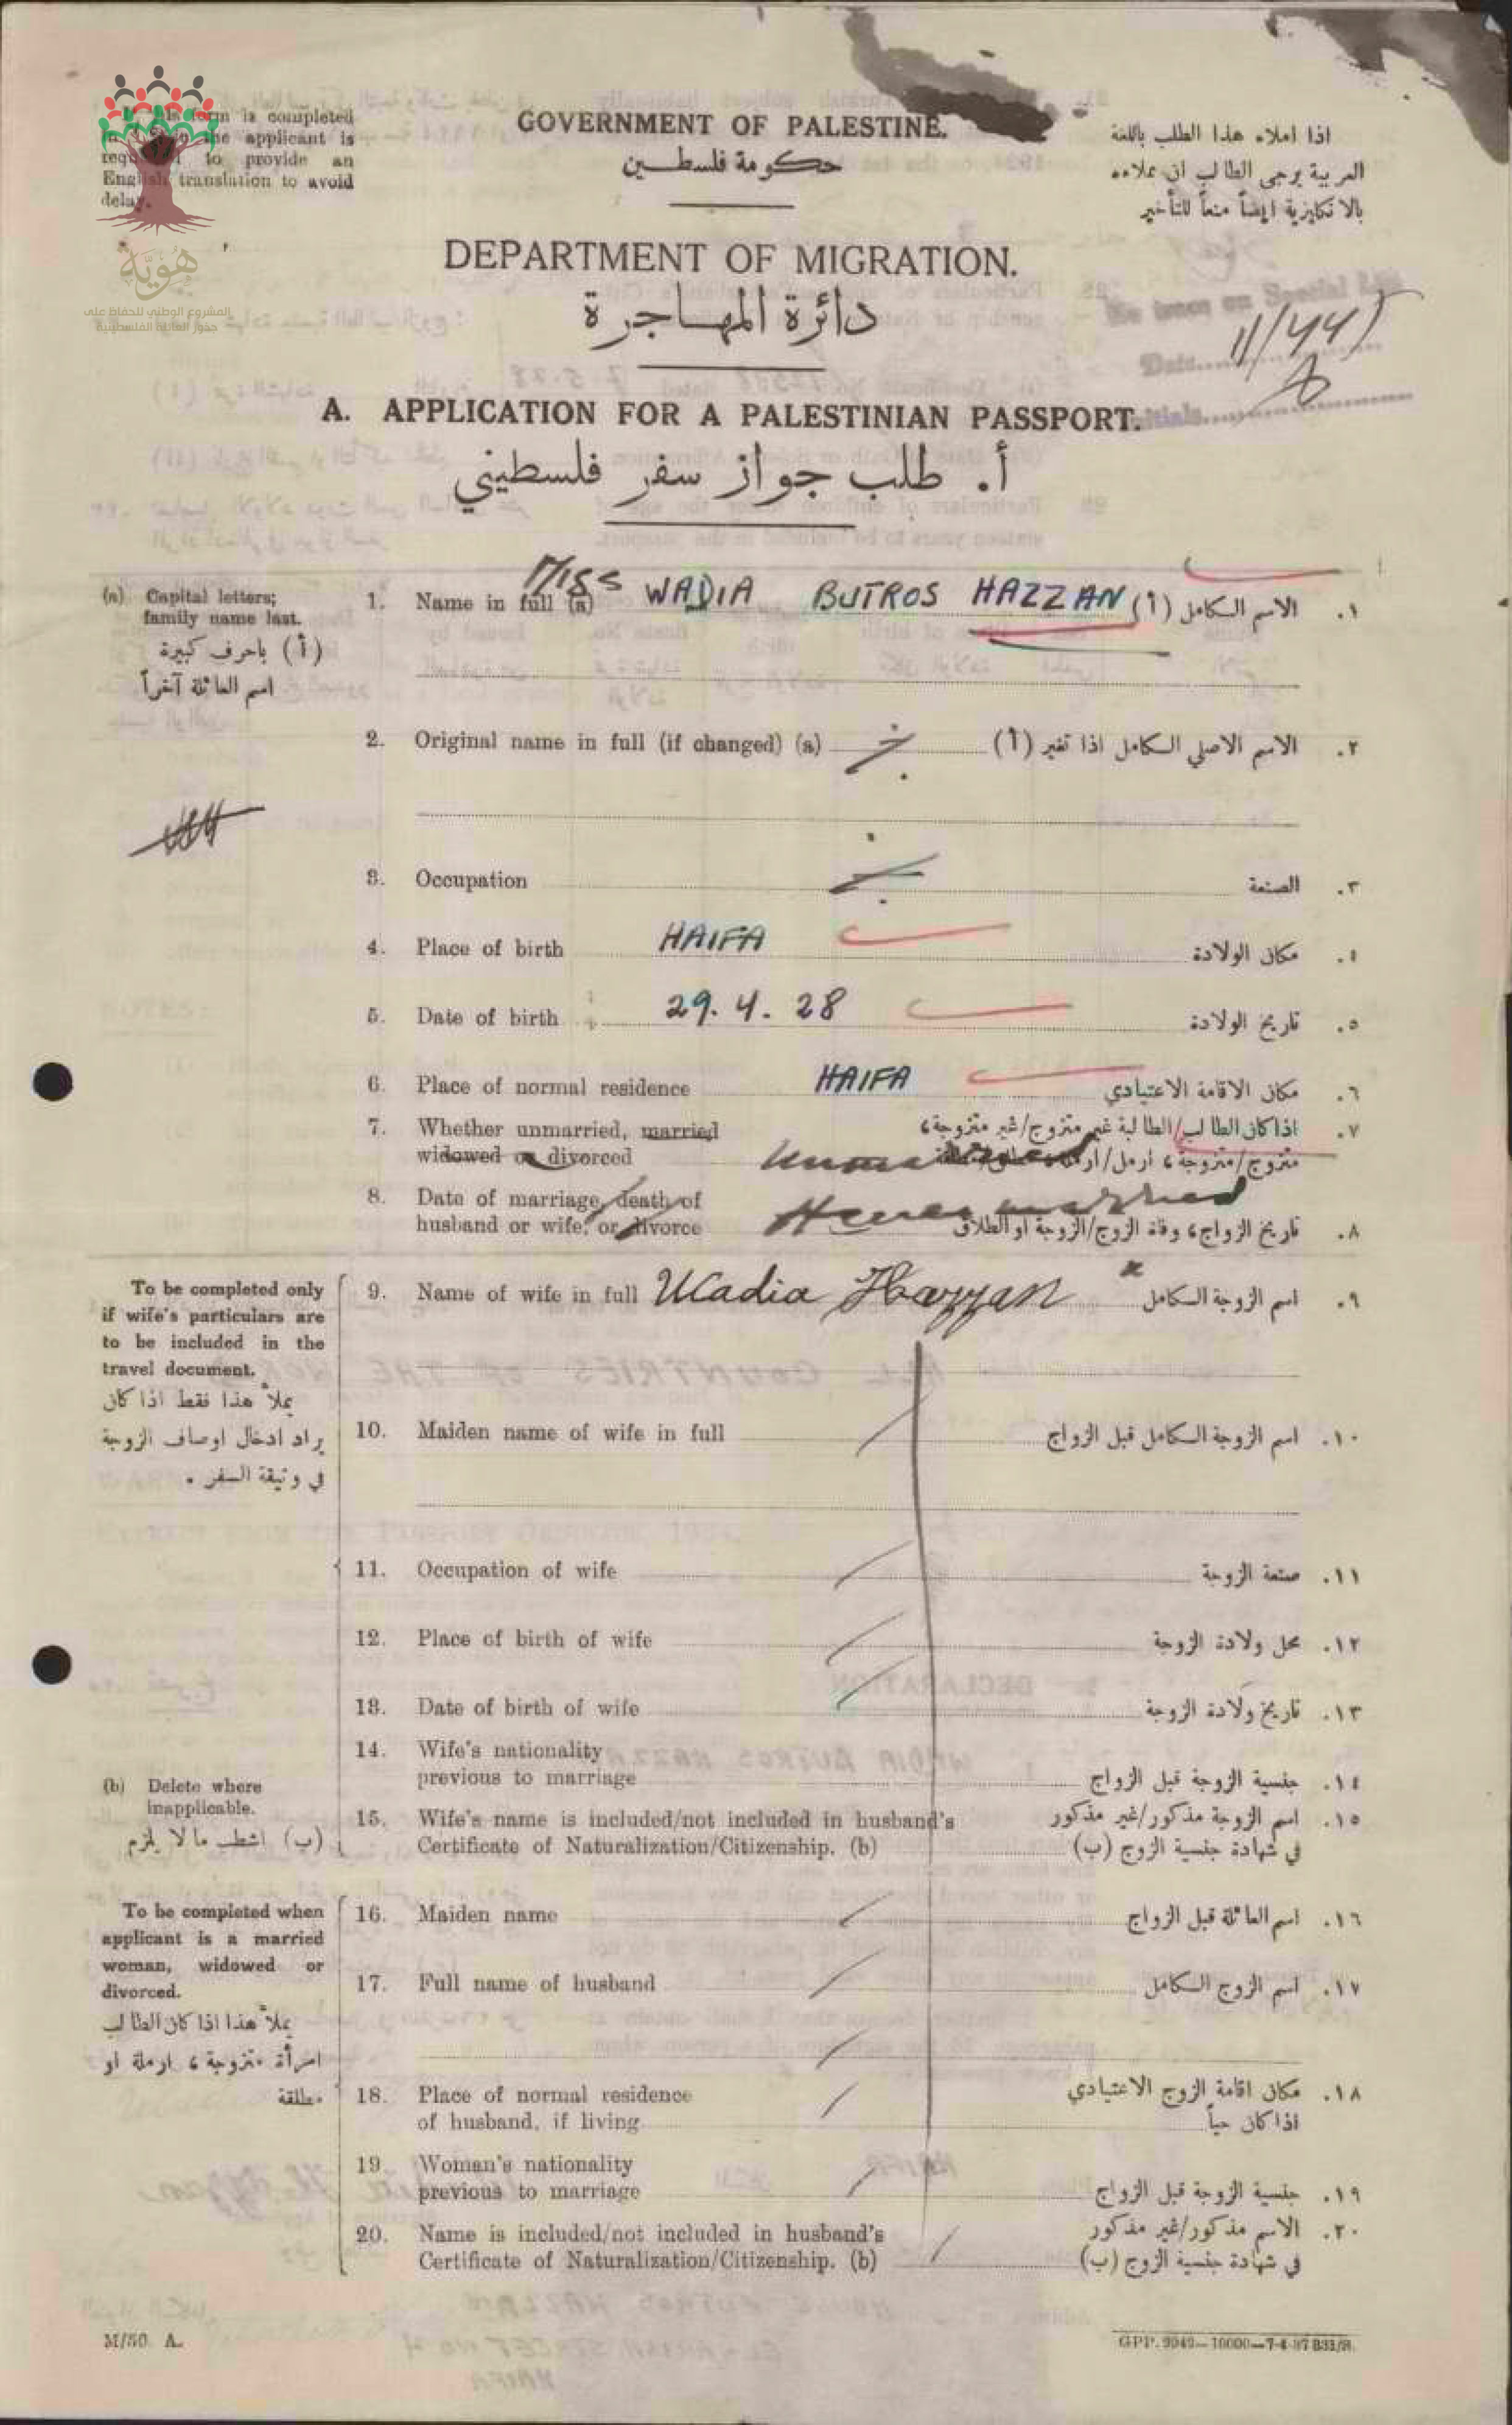 If this form is completed
in Arabic the applicant is
required to provide an
English translation to avoid
delay.
هوية
المشروع الوطني للحفاظ على
جذور العائلة الفلسطينية
GOVERNMENT OF PALESTINE.
حكومة فلسطين
اذا املاء هذا الطلب باللغة
العربية يرجى الطالب ان يملاءه
بالانكليزية ايضاً منعاً للتأخير
DEPARTMENT OF MIGRATION.
دائرة المهاجرة
No trace on Special List
Date
Initials
A. APPLICATION FOR A PALESTINIAN PASSPORT.
أ. طلب جواز سفر فلسطيني
(a) Capital letters;
family name last.
(أ) باحرف كبيرة
اسم العائلة آخراً
1. Name in full (a) Miss WADIA BUTROS HAZZAN الاسم الكامل (أ) ١.
2. Original name in full (if changed) (a) الاسم الاصلي الكامل اذا تغير (أ) ٢.
3. Occupation الصنعة ٣.
4. Place of birth HAIFA مكان الولادة ٤.
5. Date of birth 29. 4. 28 تاريخ الولادة ٥.
6. Place of normal residence HAIFA مكان الاقامة الاعتيادي ٦.
7. Whether unmarried, married اذا كان الطالب/الطالبة غير متزوج/غير متزوجة، ٧.
widowed or divorced متزوج/متزوجة، ارمل/
8. Date of marriage, death of
husband or wife, or divorce married تاريخ الزواج، وفاة الزوج/الزوجة او الطلاق ٨.
To be completed only
if wife's particulars are
to be included in the
travel document.
يملأ هذا فقط اذا كان
يراد ادخال اوصاف الزوجة
في وثيقة السفر .
9. Name of wife in full Wadia Hazzan اسم الزوجة الكامل ٩.
10. Maiden name of wife in full اسم الزوجة الكامل قبل الزواج ١٠.
11. Occupation of wife صنعة الزوجة ١١.
12. Place of birth of wife محل ولادة الزوجة ١٢.
13. Date of birth of wife تاريخ ولادة الزوجة ١٣.
14. Wife's nationality
previous to marriage جنسية الزوجة قبل الزواج ١٤.
(b) Delete where
inapplicable.
(ب) اشطب ما لا يلزم
15. Wife's name is included/not included in husband's اسم الزوجة مذكور/غير مذكور ١٥.
Certificate of Naturalization/Citizenship. (b) في شهادة جنسية الزوج (ب)
To be completed when
applicant is a married
woman, widowed or
divorced.
يملأ هذا اذا كان الطالب
امرأة متزوجة، ارملة او
مطلقة
16. Maiden name اسم العائلة قبل الزواج ١٦.
17. Full name of husband اسم الزوج الكامل ١٧.
18. Place of normal residence مكان اقامة الزوج الاعتيادي ١٨.
of husband, if living اذا كان حياً
19. Woman's nationality
previous to marriage جنسية الزوجة قبل الزواج ١٩.
20. Name is included/not included in husband's الاسم مذكور/غير مذكور ٢٠.
Certificate of Naturalization/Citizenship. (b) في شهادة جنسية الزوج (ب)
M/50 A.
GPP. 9949—10000—7-4-37 B33/S.